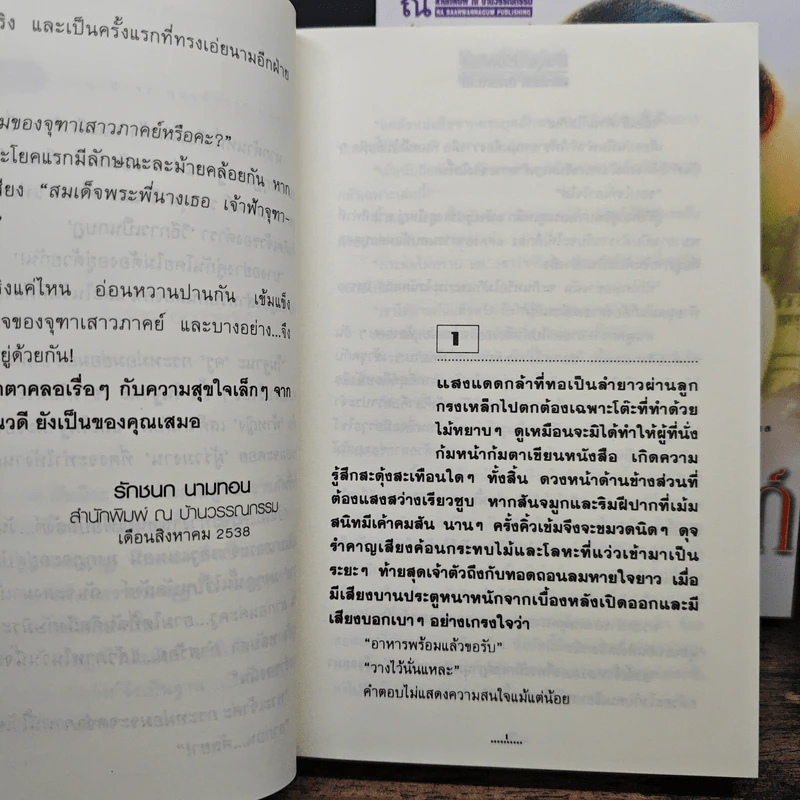 สำนักพิมพ์ ณ บ้านวรรณกรรม
ณ
NA BAANWANNAGUM PUBLISHING
และเป็นครั้งแรกที่ทรงเอ่ยนามอีกฝ่าย
ของจุฑาเสาวภาคย์หรือคะ?”
ะโยคแรกมีลักษณะละม้ายคล้อยกัน หาก
“สมเด็จพระพี่นางเธอ เจ้าฟ้าจุฑา-
”
แค่ไหน อ่อนหวานปานกัน เข้มแข็ง
ของจุฑาเสาวภาคย์ และบางอย่าง...จึง
ยู่ด้วยกัน!
ตาคลอเรื่อๆ กับความสุขใจเล็กๆ จาก
วดี ยังเป็นของคุณเสมอ
รักชนก นามทอน
สำนักพิมพ์ ณ บ้านวรรณกรรม
เดือนสิงหาคม 2538
1
แสงแดดกล้าที่ทอเป็นลำยาวผ่านลูก
กรงเหล็กไปตกต้องเฉพาะโต๊ะที่ทำด้วย
ไม้หยาบๆ ดูเหมือนจะมิได้ทำให้ผู้ที่นั่ง
ก้มหน้าก้มตาเขียนหนังสือ เกิดความ
รู้สึกสะดุ้งสะเทือนใดๆ ทั้งสิ้น ดวงหน้าด้านข้างส่วนที่
ต้องแสงสว่างเรียวซูบ หากสันจมูกและริมฝีปากที่เม้ม
สนิทมีเค้าคมสัน นานๆ ครั้งคิ้วเข้มจึงจะขมวดนิดๆ ดุจ
รำคาญเสียงค้อนกระทบไม้และโลหะที่แว่วเข้ามาเป็น
ระยะๆ ท้ายสุดเจ้าตัวถึงกับทอดถอนลมหายใจยาว เมื่อ
มีเสียงบานประตูหนาหนักจากเบื้องหลังเปิดออกและมี
เสียงบอกเบาๆ อย่างเกรงใจว่า
“อาหารพร้อมแล้วขอรับ”
“วางไว้นั่นแหละ”
คำตอบไม่แสดงความสนใจแม้แต่น้อย